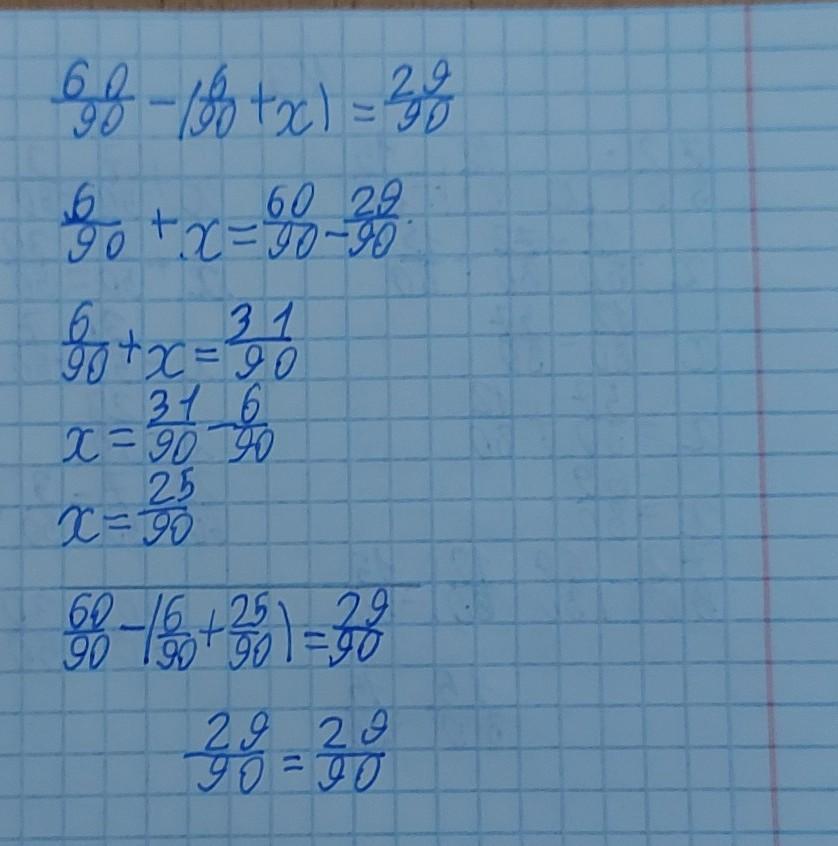 60/90 - (6/90 + x) = 29/90
6/90 + x = 60/90 - 29/90
6/90 + x = 31/90
x = 31/90 - 6/90
x = 25/90
60/90 - (6/90 + 25/90) = 29/90
29/90 = 29/90